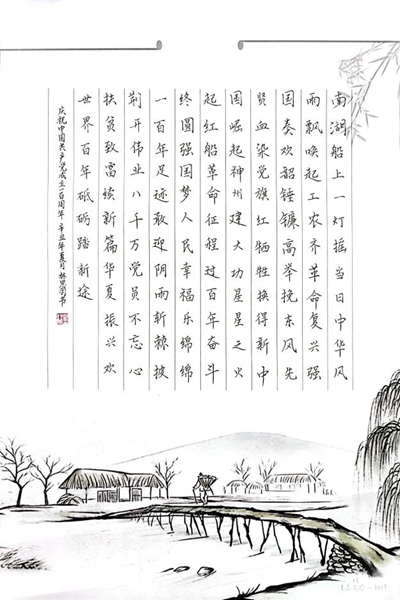 南湖船上一灯摇当日中华风
雨飘唤起工农齐革命复兴强
国奏欢韶锤镰高举挽东风先
贤血染党旗红牺牲换得新中
国崛起神州建大功星星之火
起红船革命征程过百年奋斗
终圆强国梦人民幸福乐绵绵
一百年足迹敢迎阴雨斩棘披
荆开伟业八千万党员不忘心
扶贫致富续新篇华夏振兴欢
世界百年砥砺踏新途
庆祝中国共产党成立一百周年 辛丑年夏月 林